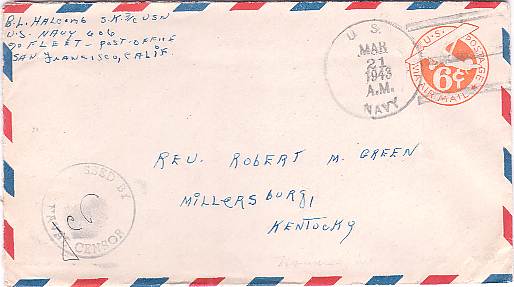 B.L. HALCOMB S.K.3/C USN
U.S. NAVY 606
℅ FLEET - POST-OFFICE
SAN FRANCISCO, CALIF.
U. S.
MAR
21
1943
A.M.
NAVY
U.S. POSTAGE
6¢
VIA AIR MAIL
REV. ROBERT M. GREEN
MILLERSBURG,
KENTUCKY
SSED BY
NAVAL
CENSOR